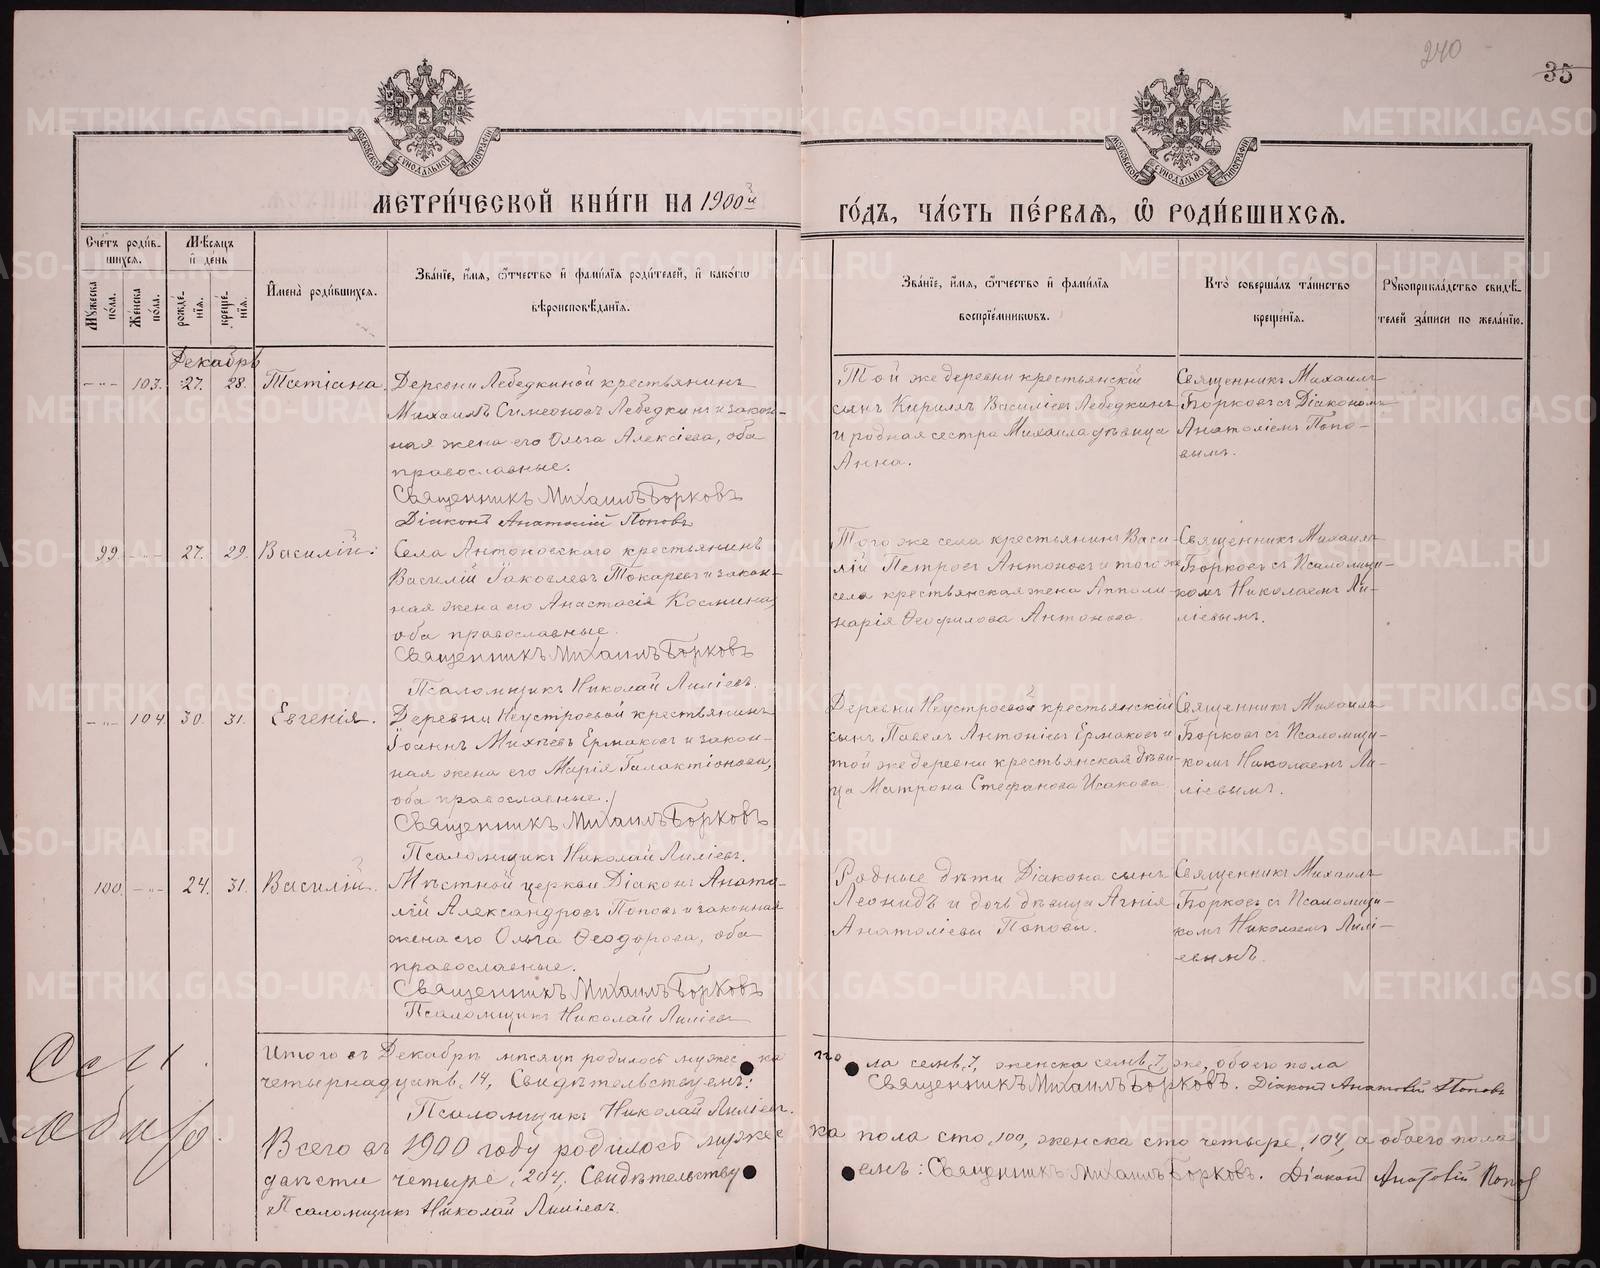 240
35
МОСКОВСКОЙ СѴНОДАЛЬНОЙ ТИПОГРАФІИ
МОСКОВСКОЙ СѴНОДАЛЬНОЙ ТИПОГРАФІИ
МЕТРИ́ЧЕСКОЙ КНИ́ГИ НА 1900й
ГО́ДЪ, ЧА́СТЬ ПЕ́РВАѦ, Ѡ҆ РОДИ́ВШИХСѦ.
Сче́тъ роди́в-
шихсѧ.
Мѣ́сѧцъ
и҆ де́нь
Мꙋ́жеска
по́ла.
Же́нска
по́ла.
рожде́-
нїѧ.
креще́-
нїѧ.
И҆мена̀ роди́вшихсѧ.
Зва́нїе, и҆́мѧ, ѻ҆́тчество и҆ фами́лїѧ роди́телей, и҆ како́гѡ
вѣроисповѣ́данїѧ.
Зва́нїе, и҆́мѧ, ѻ҆́тчество и҆ фами́лїѧ
воспрїе́мникѡвъ.
Кто̀ соверша́лъ та́инство
креще́нїѧ.
Рꙋкоприкла́дство свидѣ́-
телей за́писи по жела́нїю.
Декабрь
103. 27. 28. Татіана.
Деревни Лебедкиной крестьянинъ
Михаилъ Симеоновъ Лебедкинъ и закон-
ная жена его Ольга Алексіева, оба
православные.
Священникъ Михаилъ Борковъ
Діаконъ Анатолій Поповъ
Той же деревни крестьянскій
сынъ Кириллъ Василіевъ Лебедкинъ
и родная сестра Михаила дѣвица
Анна.
Священникъ Михаилъ
Борковъ съ Діакономъ
Анатоліемъ Попо-
вымъ.
99. 27. 29. Василій.
Села Антоновскаго крестьянинъ
Василій Іаковлевъ Токаревъ и закон-
ная жена его Анастасія Космина,
оба православные.
Священникъ Михаилъ Борковъ
Псаломщикъ Николай Лиліевъ.
Того же села крестьянинъ Васи-
лій Петровъ Антоновъ и того же
села крестьянская жена Аполли-
нарія Ѳеофилова Антонова.
Священникъ Михаилъ
Борковъ съ Псаломщи-
комъ Николаемъ Ли-
ліевымъ.
104. 30. 31. Евгенія.
Деревни Неустроевой крестьянинъ
Іоаннъ Михѣевъ Ермаковъ и закон-
ная жена его Марія Галактіонова,
оба православные.
Священникъ Михаилъ Борковъ
Псаломщикъ Николай Лиліевъ.
Деревни Неустроевой крестьянскій
сынъ Павелъ Антоніевъ Ермаковъ и
той же деревни крестьянская дѣви-
ца Матрона Стефанова Исакова.
Священникъ Михаилъ
Борковъ съ Псаломщи-
комъ Николаемъ Ли-
ліевымъ.
100. 24. 31. Василій.
Мѣстной церкви Діаконъ Анато-
лій Александровъ Поповъ и законная
жена его Ольга Ѳеодорова, оба
православные.
Священникъ Михаилъ Борковъ
Псаломщикъ Николай Лиліевъ
Родные дѣти Діакона сынъ
Леонидъ и дочь дѣвица Агнія
Анатоліевы Поповы.
Священникъ Михаилъ
Борковъ съ Псаломщи-
комъ Николаемъ Лилі-
евымъ.
Итого въ Декабрѣ мѣсяцѣ родилось мужеска
по ла семь, 7, женска семь, 7, же, обоего пола
четырнадцать, 14, Свидѣтельствуемъ:
Священникъ Михаилъ Борковъ. Діаконъ Анатолій Поповъ
Псаломщикъ Николай Лиліевъ.
Всего въ 1900 году родилось мужес
ка пола сто, 100, женска сто четыре, 104, а обоего пола
двѣсти четыре, 204, Свидѣтельству
емъ: Священникъ Михаилъ Борковъ. Діаконъ Анатолій Попов
Псаломщикъ Николай Лиліевъ.
METRIKI.GASO-URAL.RU